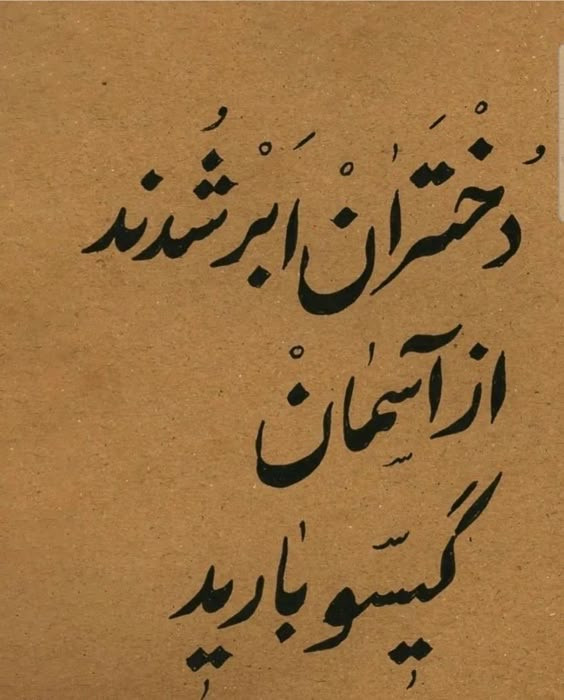 دُخْتَران اَبْر شُدند
از آسمان
گیسو بارید